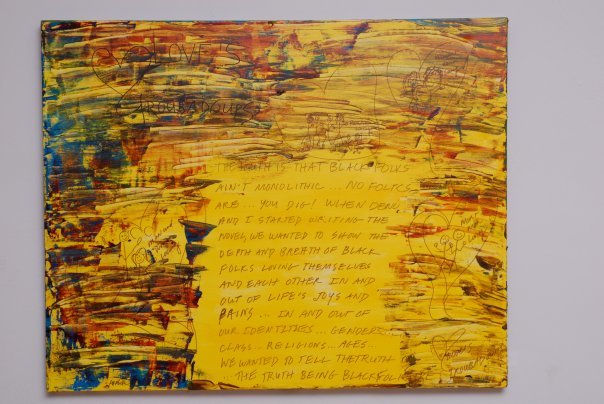 LOVE IS
TROUBADOURS
THE TRUTH IS THAT BLACK FOLKS
AIN'T MONOLITHIC ... NO FOLKS
ARE ... YOU DIG! WHEN
AND I STARTED WRITING THE
NOVEL, WE WANTED TO SHOW THE
DEPTH AND BREATH OF BLACK
FOLKS LOVING THEMSELVES
AND EACH OTHER IN AND
OUT OF LIFE'S JOYS AND
PAINS ... IN AND OUT OF
OUR IDENTITIES ... GENDERS ...
CLASS .. RELIGIONS ... AGES ...
WE WANTED TO TELL THE TRUTH
... THE TRUTH BEING BLACK FOLK